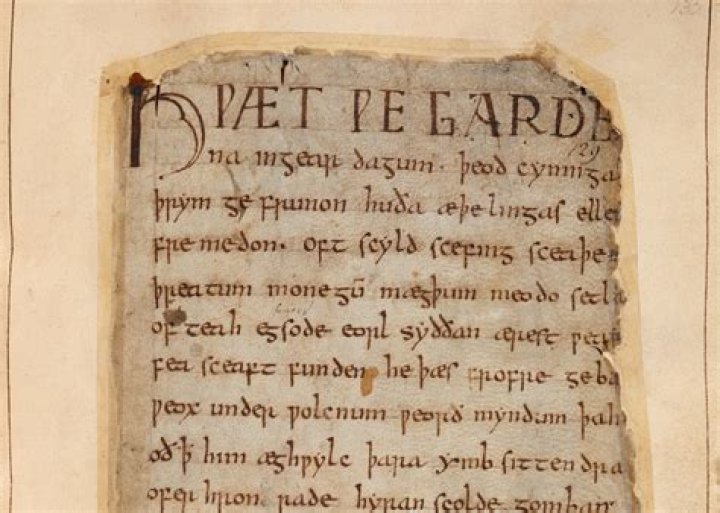 130
HǷÆT ǷE GARDE
129
na in gear dagum . þeod cyninga
þrym ge frunon huða æþelingas elle
fremedon . oft scyld scefing sceaþe
þreatum monegū mægþum meodo setla
of teah egsode eorl syððan ærest ƿear
fea sceaft funden he þæs frofre geba
ƿeox under ƿolcnum ƿeorð myndum þah
oð ꝥ him æghƿylc þara ymb sittendra
ofer hron rade hyran scolde gomban